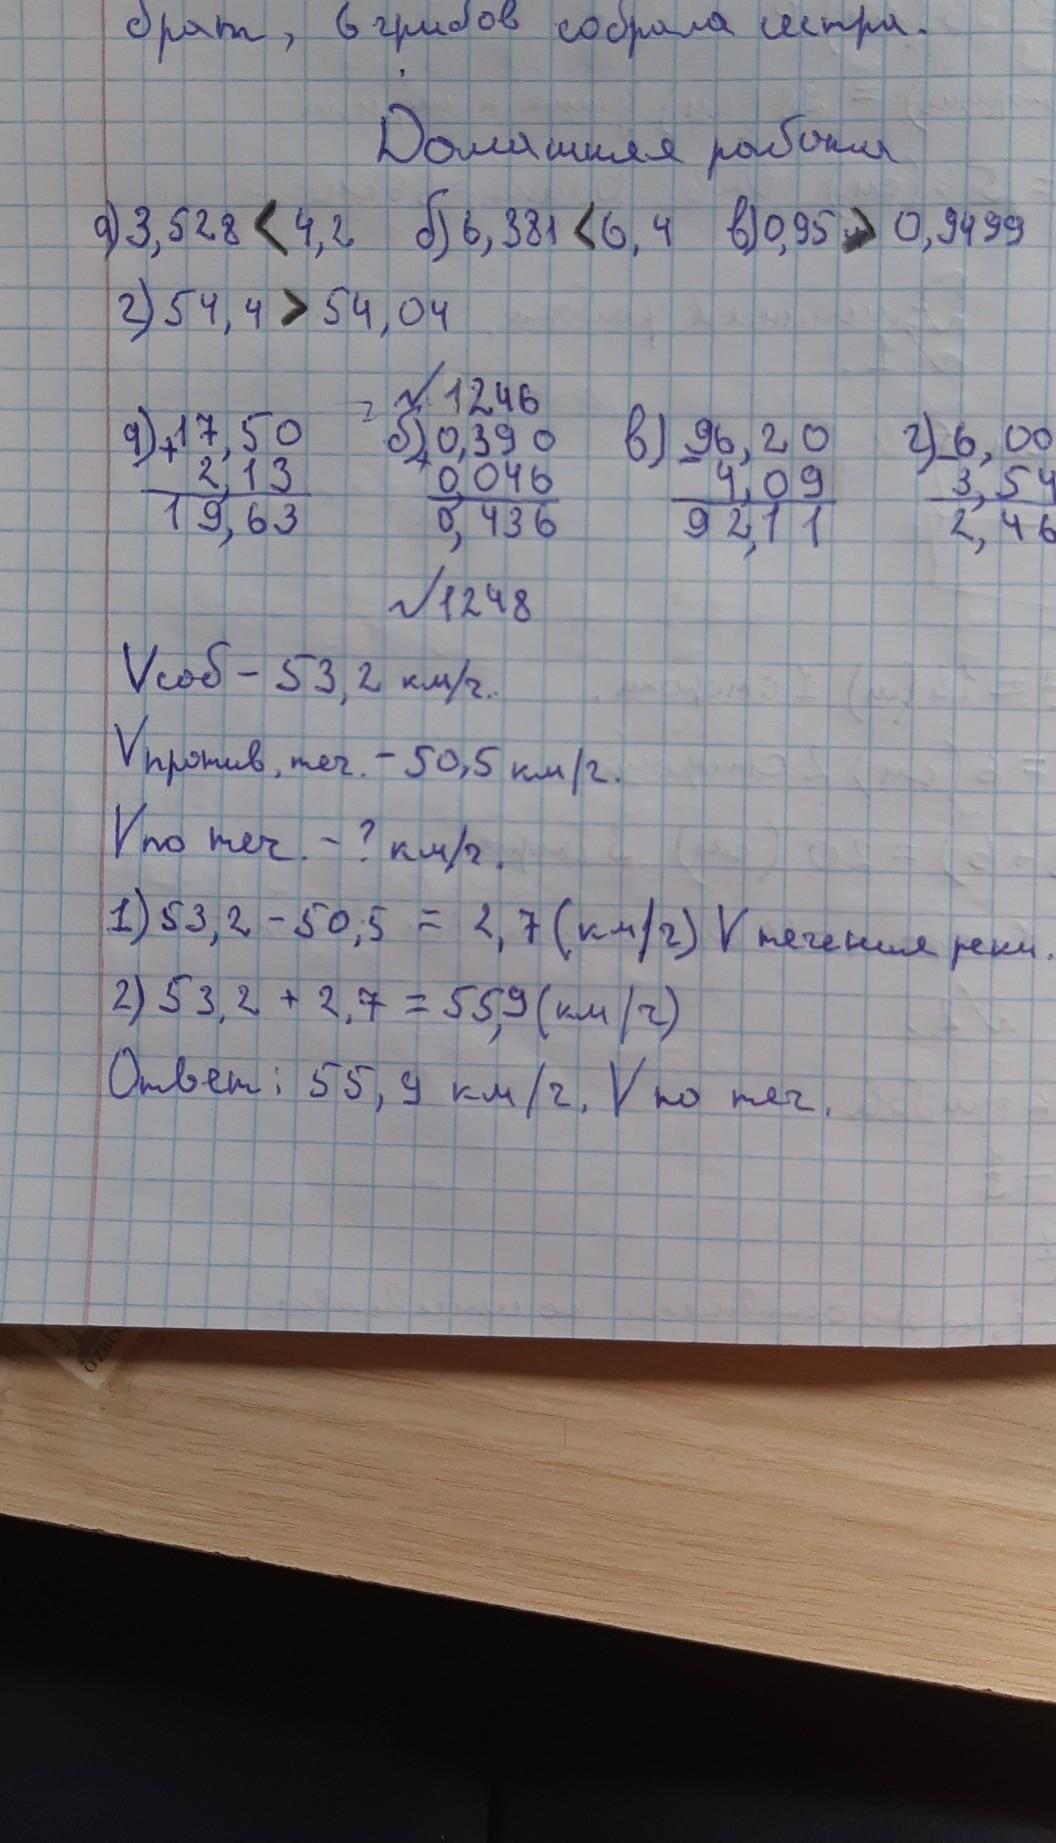 брат, 6 грибов собрала сестра.
Домашняя работа
а) 3,528 < 4,2 б) 6,381 < 6,4 в) 0,95 > 0,9499
г) 54,4 > 54,04
√ 1246
а) +17,50 б) +0,390 в) -96,20 г) -6,00
2,13 0,046 4,09 3,54
19,63 0,436 92,11 2,46
√ 1248
Vсоб - 53,2 км/ч.
Vпротив. теч. - 50,5 км/ч.
Vпо теч. - ? км/ч.
1) 53,2 - 50,5 = 2,7 (км/ч) V течения реки.
2) 53,2 + 2,7 = 55,9 (км/ч)
Ответ: 55,9 км/ч. V по теч.